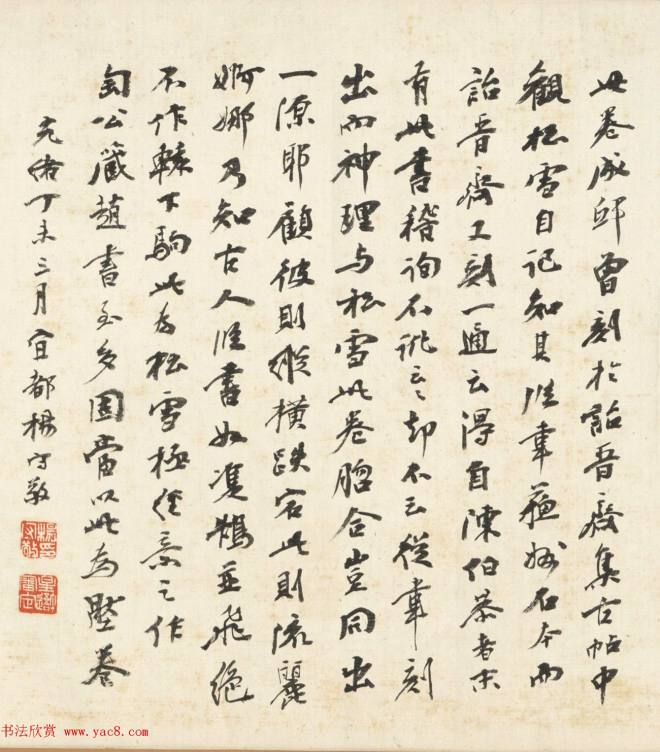 此卷成邸曾刻於詒晉齋集古帖中
觀松雪自記知其臨章藻摹石本而
詒晉齋又刻一通云得自陳伯恭者末
有此書稽詢不訛云云却不云從章刻
出而神理与松雪此卷脗合豈同出
一源耶顧彼則縱橫跌宕此則流麗
婀娜乃知古人臨書如隻鵠並飛絕
不作轅下駒此為松雪極經意之作
匋公藏趙書至多固當以此為壓卷
光緒丁未三月宜都楊守敬
书法欣赏 www.yac8.com